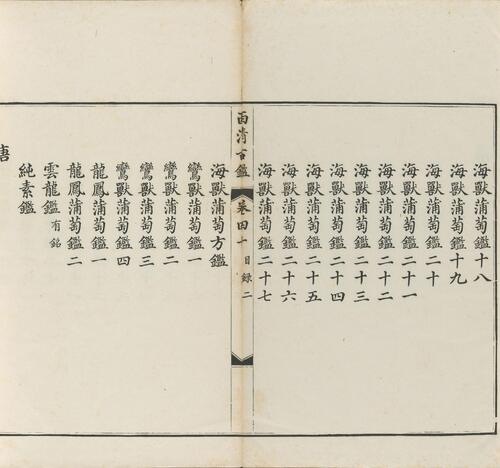 海獸蒲萄鑑十八
海獸蒲萄鑑十九
海獸蒲萄鑑二十
海獸蒲萄鑑二十一
海獸蒲萄鑑二十二
海獸蒲萄鑑二十三
海獸蒲萄鑑二十四
海獸蒲萄鑑二十五
海獸蒲萄鑑二十六
海獸蒲萄鑑二十七
西清古鑑 卷四十 目錄 二
海獸蒲萄方鑑
鸞獸蒲萄鑑一
鸞獸蒲萄鑑二
鸞獸蒲萄鑑三
鸞獸蒲萄鑑四
龍鳳蒲萄鑑一
龍鳳蒲萄鑑二
雲龍鑑 有銘
純素鑑
唐